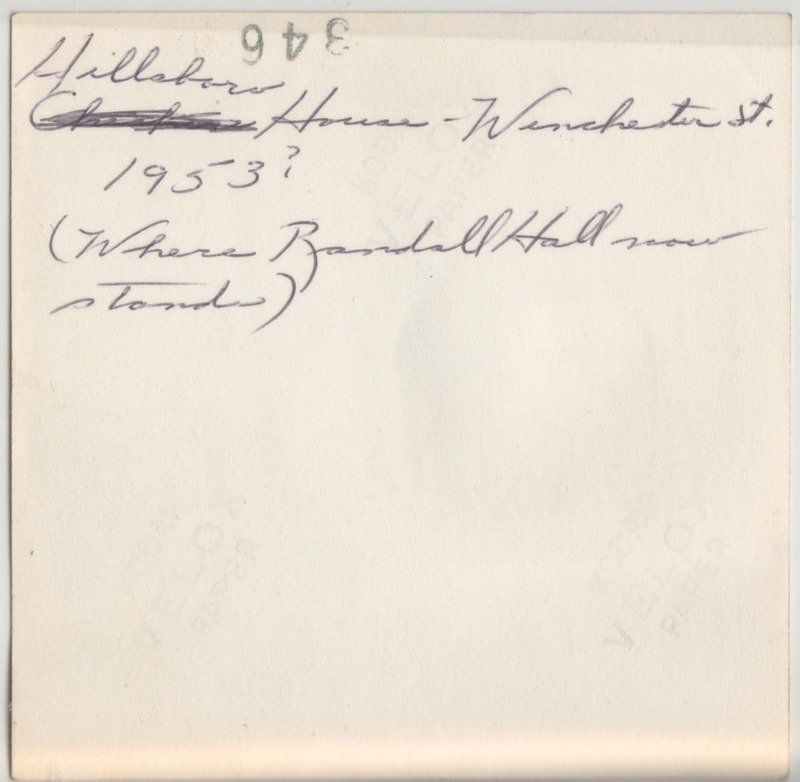 346
Hillsboro
House - Winchester St.
1953?
(Where Randall Hall now
stands)
KODAK
VELOX
PAPER
VELOX
PAPER
KODAK
VELOX
PAPER